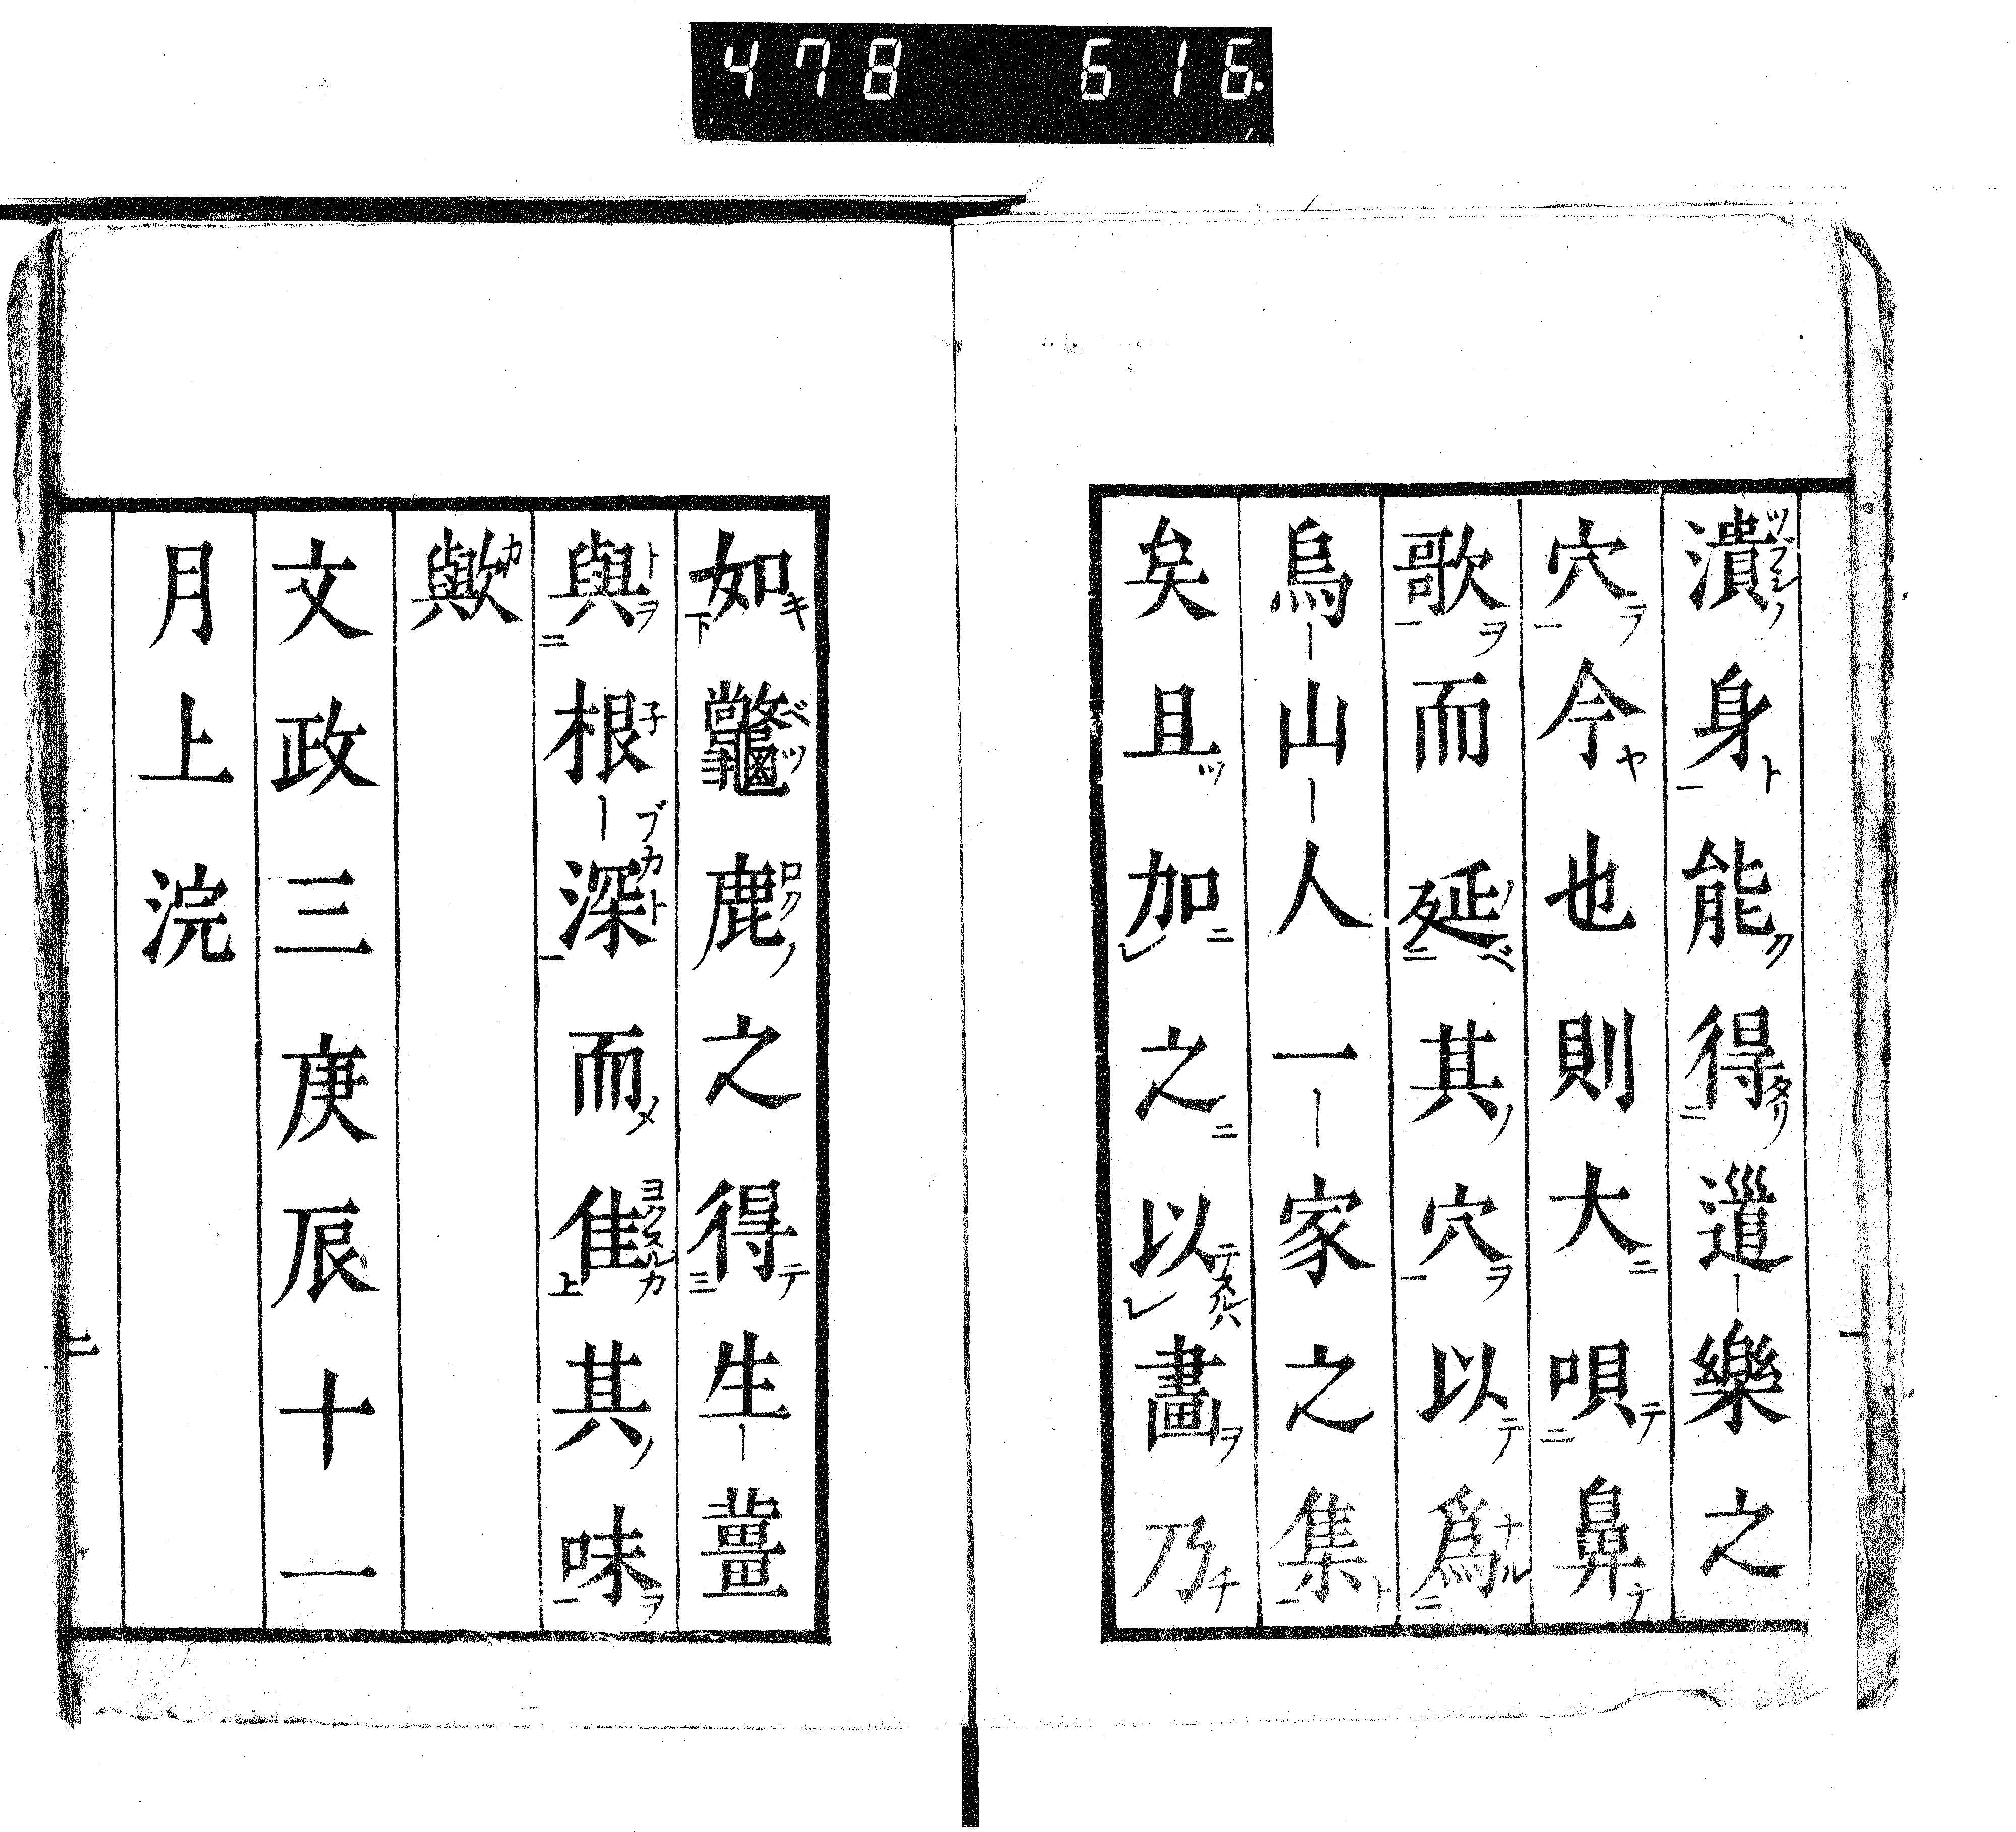 478 616.
潰身能得道樂之
穴今也則大唄鼻
歌而延其穴以爲
烏山人一家之集
矣且加之以畫乃
如鼈鹿之得生薑
與根深而佳其味
歟
文政三庚辰十一
月上浣
二